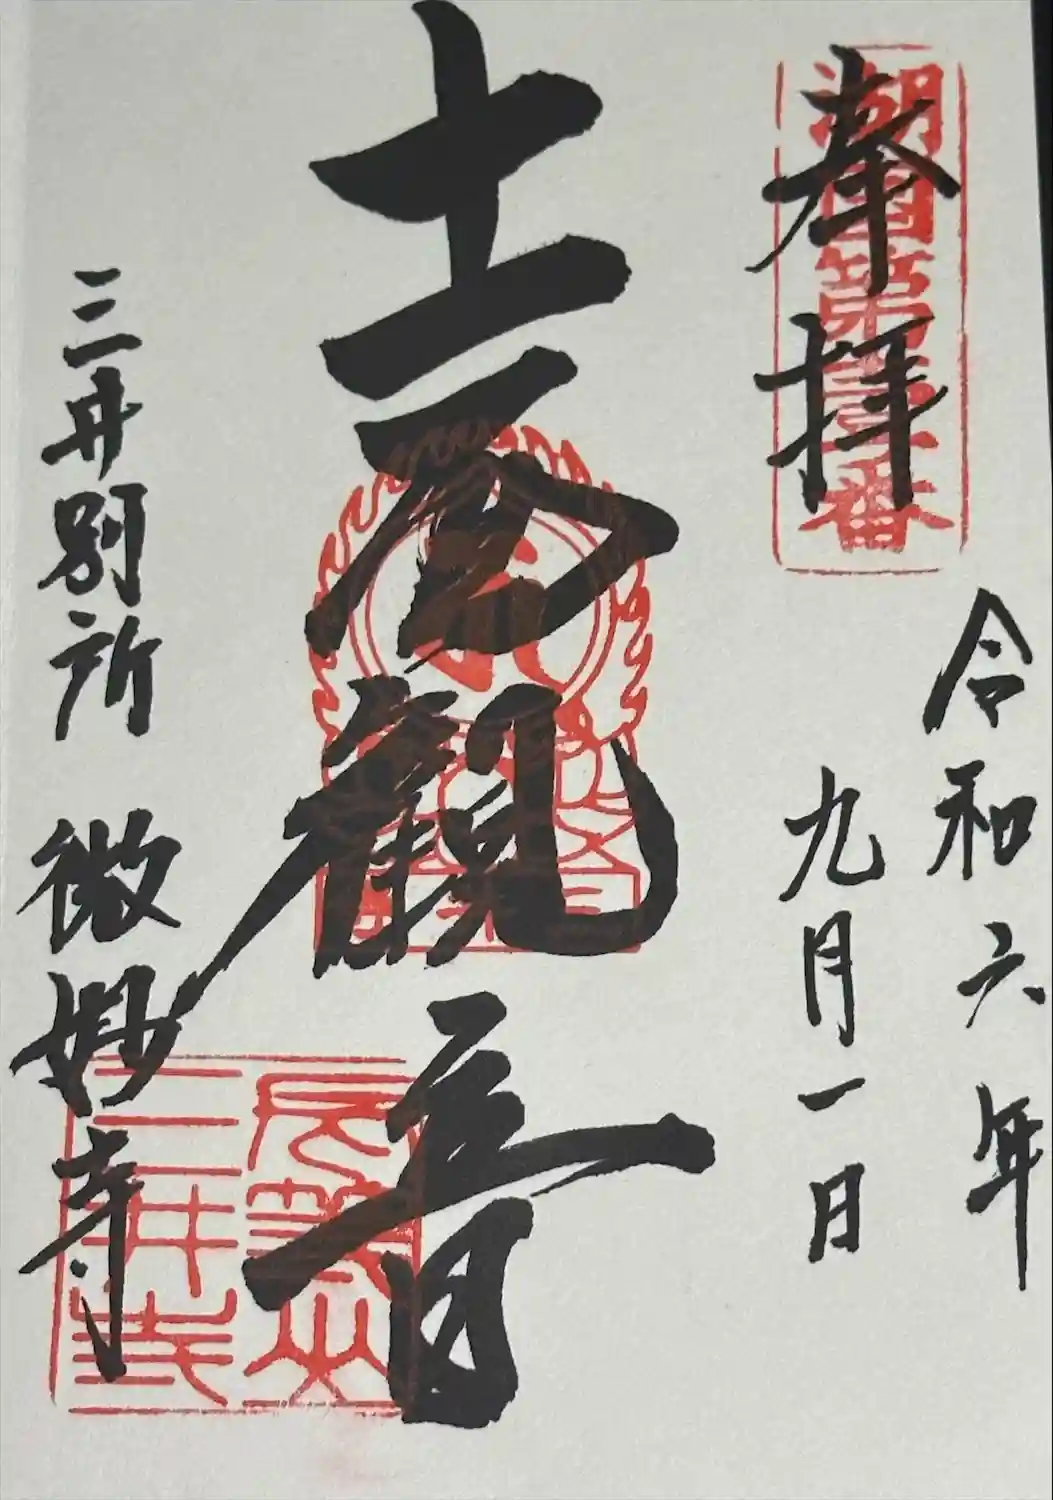 奉拝
湖国第番
令和六年
九月一日
十一面觀音
三井別所 微妙寺
長等山
三井寺